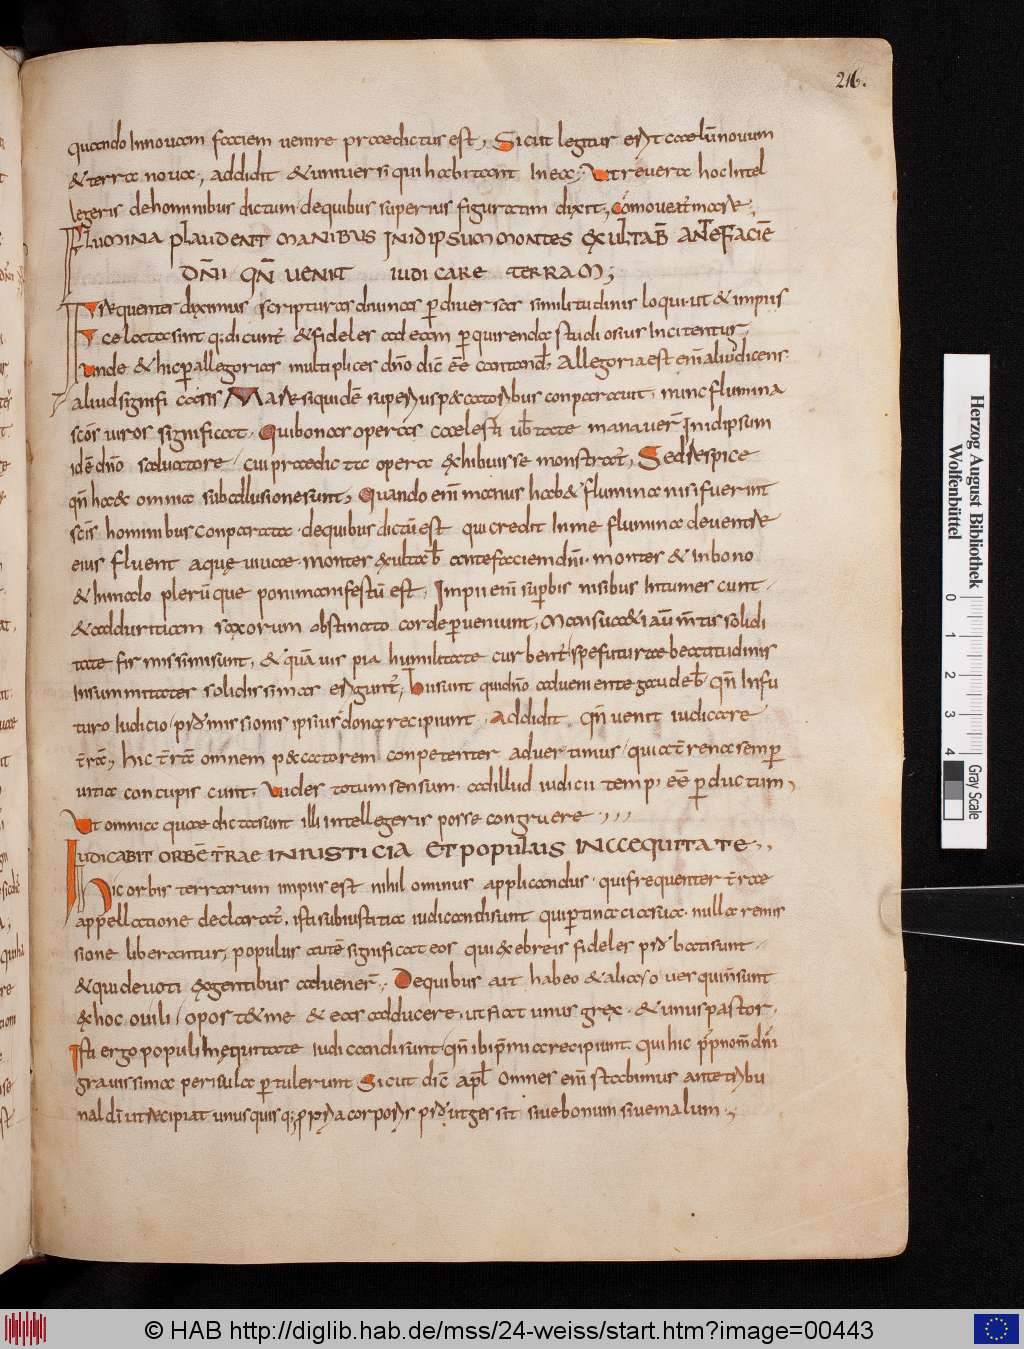 216.
quando Innouam faciem uenire praedictus est, Sicut legitur erit caelū nouum
& terra noua, addidit & uniuersi qui habitant In ea; Ut reuera hoc Intel
legeris de hominibus dictum de quibus superius figuratim dixit, Cōmoueat̄ mare,
Flumina plaudent manibus In id ipsum montes exultab̄ ante faciē
dn̄i qn̄ uenit iudicare terram;
Frequenter diximus scripturas diuinas p diuersas similitudinis loqui ut & impiis
celata sint q; dicunt̄ & fideles ad eam pquirenda studiosius Incitentur,
Unde & hic p allegorias multiplices dn̄o dic̄ eē cantand̄, Allegoria est enī aliud dicens
aliud significans Mare siquidē superius peccatoribus conparauit, nunc flumina
sc̄os uiros significat. Qui bonas operas caelesti ub̄tate manauer̄ In id ipsum
idē dn̄o saluatore, cui praedictae opera exhibuisse monstrat̄, Sed respice
qn̄ haec omnia sub allusione sunt, Quando enī manus hab& flumina nisi fuerint
sc̄is hominibus conparata de quibus dictū est qui credit In me flumina de uentre
eius fluent aquę uiuae. montes exultab̄ ante faciem dn̄i. montes & In bono
& In malo plerūque poni manifestū est, Impii enī supbis nisibus Intumescunt
& ad duritiam saxorum obstinato corde pueniunt, Mansuaeti aut̄ m̄tis solidi
tate firmissimi sunt, & quā uis pia humilitate curbent̄ spe futurae beatitudinis
In summitates solidissimas eriguntr̄, hi sunt qui dn̄o adueniente gaudeb̄ qn̄ In fu
turo Iudicio, pro missionis ipsius dona recipiunt. Addidit qn̄ uenit iudicare
t̄rā, hic t̄rā omnem peccatorem conpetenter aduertimus, qui a t̄rena semp
uitia concupiscunt. Uides totum sensum. ad illud iudicii temp' eē pductum,
Ut omnia quae dicta sunt illi intellegeris posse congruere,,,
Iudicabit orbē t̄rae In iusticia et populus In aequitate,,
Hic orbis terrarum impiis est nihilominus applicandus. qui frequenter t̄rae
appellatione declarat̄, isti sub iustitia iudicandi sunt qui ptinacia sua. nulla remis
sione liberantur, populus autē significat eos qui ex ebreis fideles pro bati sunt
& qui deuoti ex gentibus aduener̄,, De quibus ait habeo & alias oues quae n̄ sunt
ex hoc ouili, oport& me & eas adducere, ut fiat unus grex. & unus pastor,
Isti ergo populi In equitate iudicandi sunt, qn̄ ibi pm̄ia recipiunt, qui hic p nom̄ dn̄i
grauissima pericula ptulerunt Sicut dic̄ apl̄ Omnes enī stabimus ante tribu
nal di ut recipiat unusquisq; propria corporis prout gessit siue bonum siue malum,
Herzog August Bibliothek
Wolfenbüttel
0 1 2 3 4
Gray Scale
© HAB http://diglib.hab.de/mss/24-weiss/start.htm?image=00443